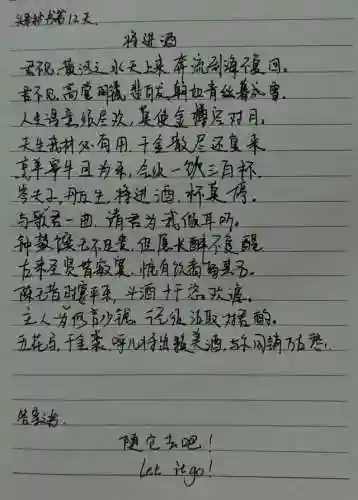 书12天.
将进酒
君不见,黄河之水天上来 奔流到海不复回。
君不见,高堂明镜悲白发 朝如青丝暮成雪.
人生得意须尽欢, 莫使金樽空对月.
天生我材必有用, 千金散尽还复来.
烹羊宰牛且为乐, 会须一饮三百杯.
岑夫子,丹丘生, 将进酒,杯莫停.
与歌君一曲, 请君为我倾耳听。
钟鼓馔玉不足贵, 但愿长醉不复醒
古来圣贤皆寂寞, 惟有饮者留其名.
陈王昔时宴平乐, 斗酒十千恣欢谑.
主人为何言少钱, 径须沽取对君酌.
五花马,千金裘,呼儿将出换美酒,与尔同销万古愁.
随它去吧!
Let it go!